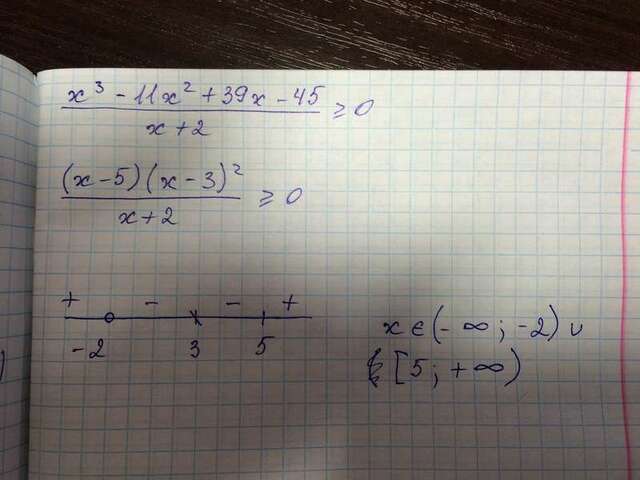 x³ - 11x² + 39x - 45
x + 2
≥ 0
(x - 5)(x - 3)²
x + 2
≥ 0
+ - - +
-2 3 5
x ∈ (-∞; -2) ∪
[5; +∞)